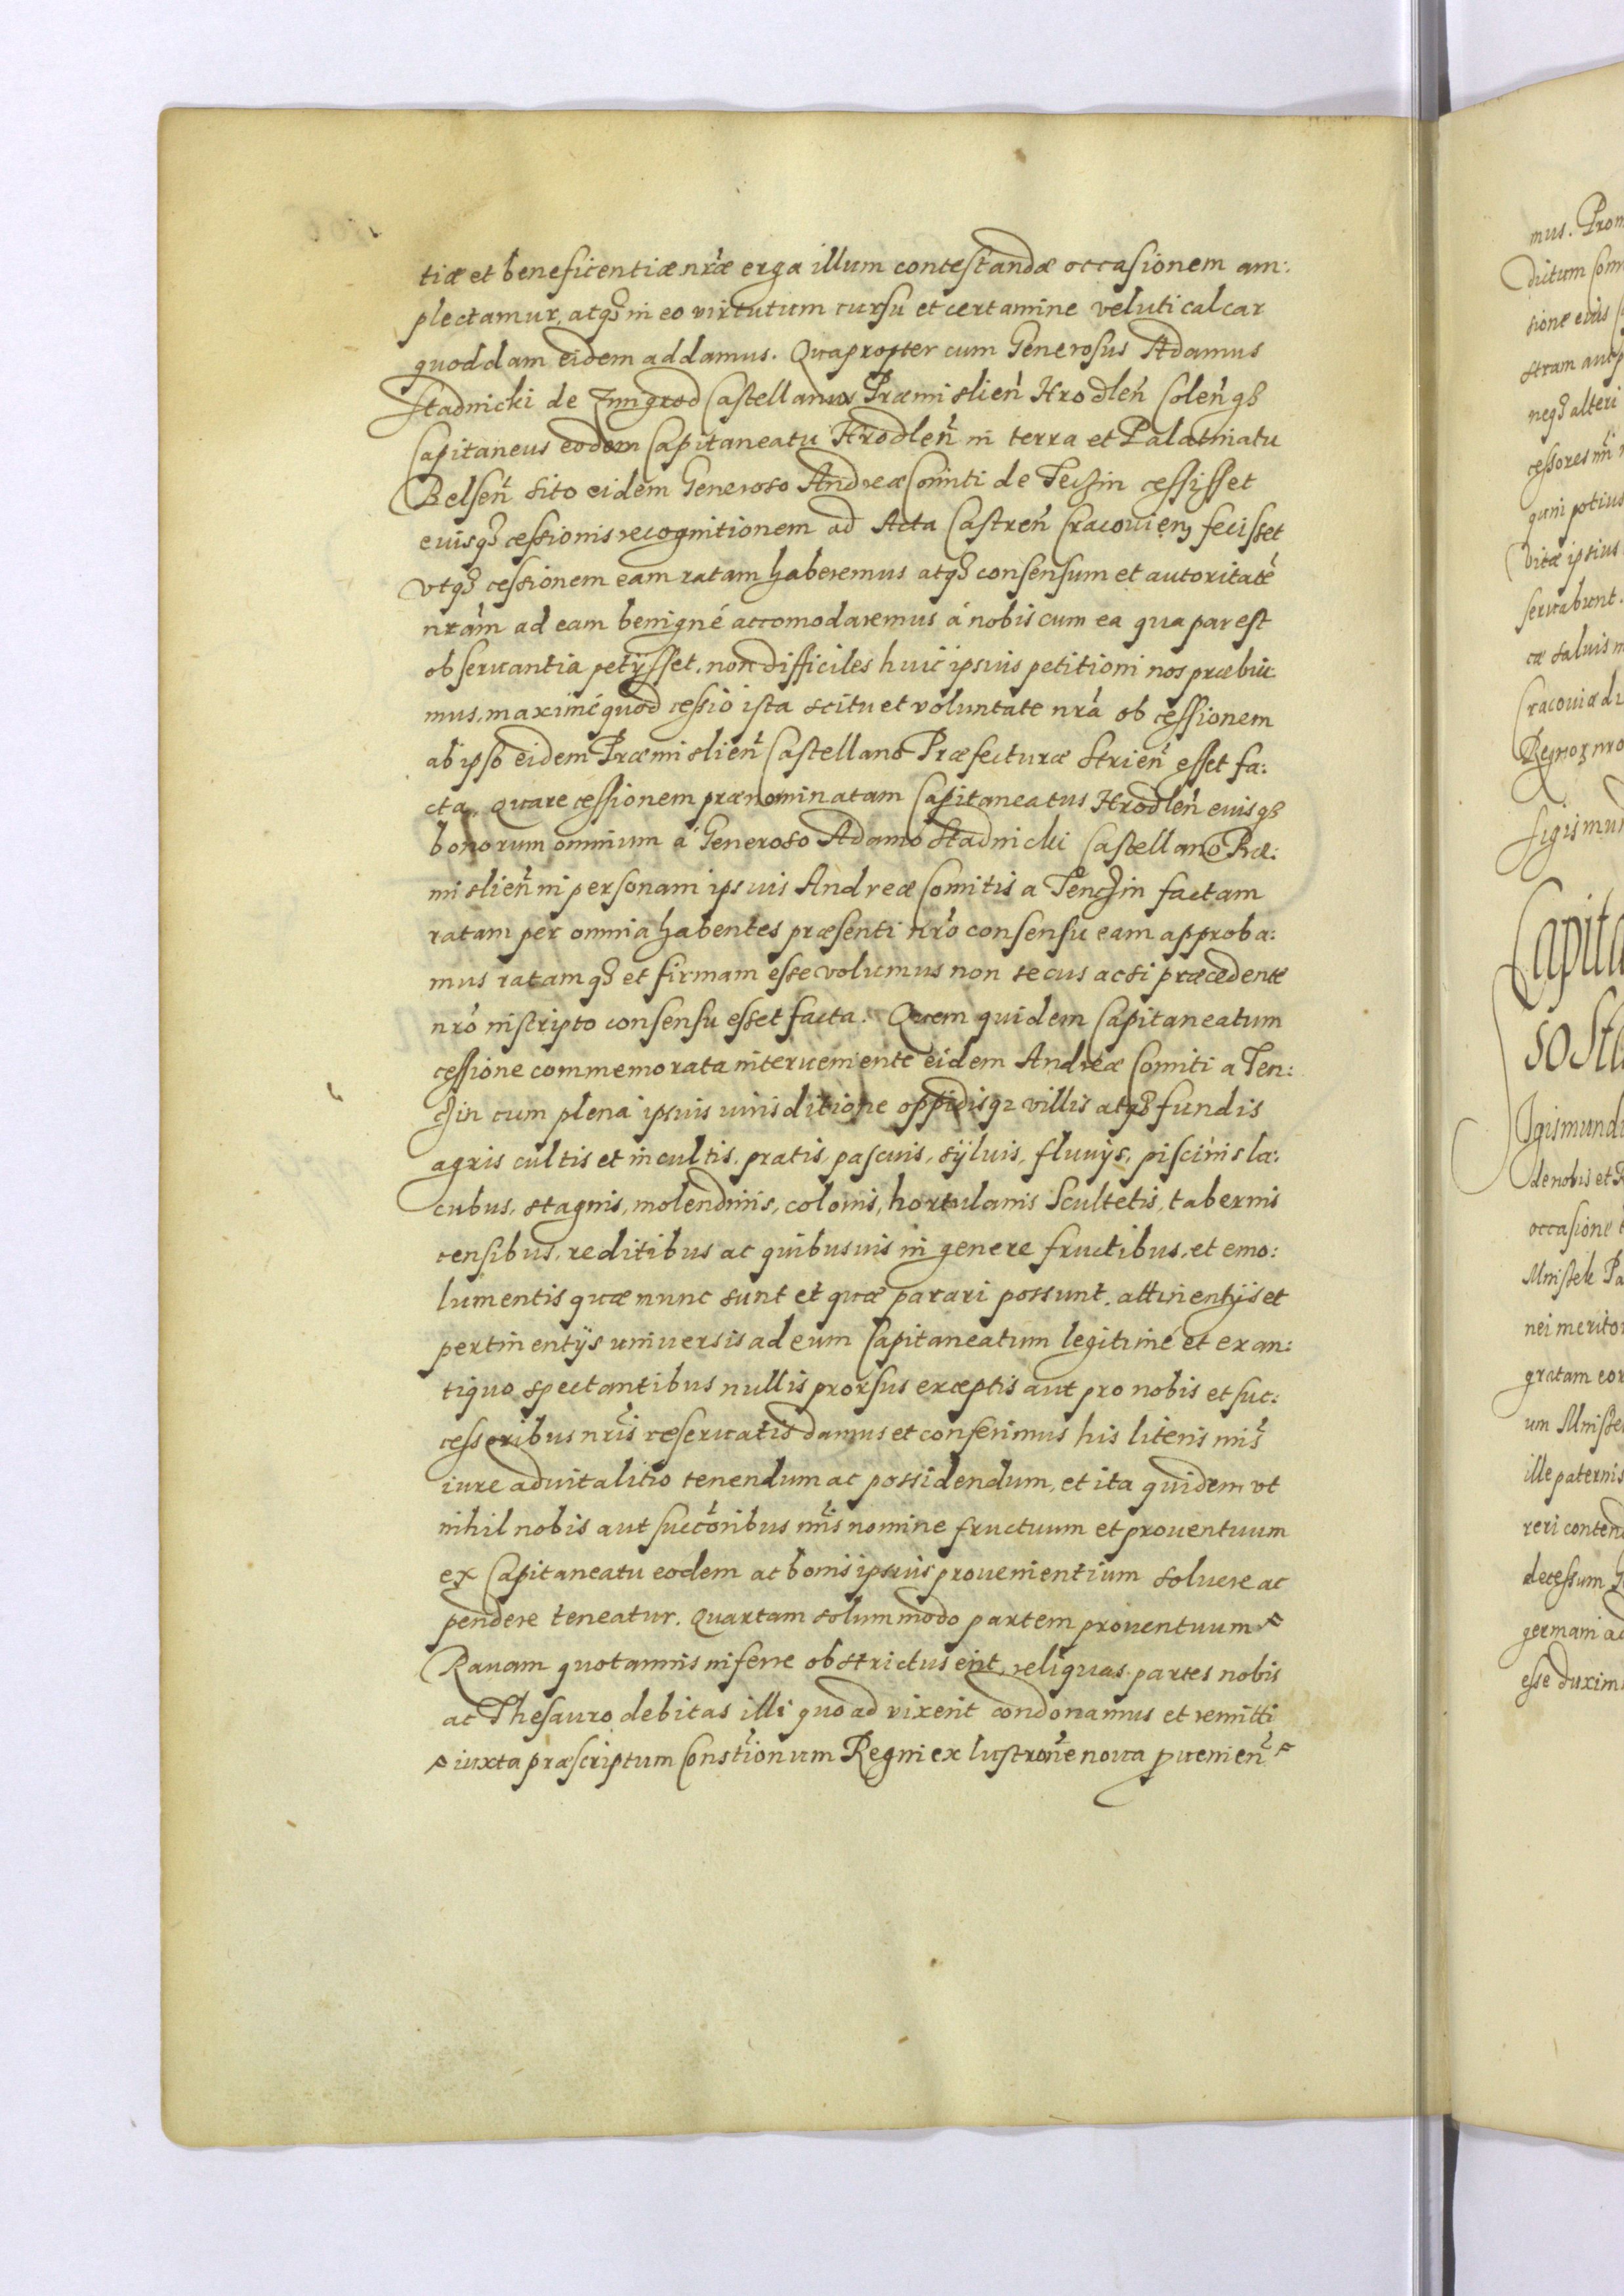 tiæ et beneficentiæ nr̃æ erga illum contestandæ occasionem am:
plectamur, atq₃ in eo virtutum cursu et certamine veluti calcar
quoddam eidem addamus. Quapropter cum Generosus Adamus
Stadnicki de Zmigrod Castellanus Præmislień Hrodleń Coleń q₃
Capitaneus eodem Capitaneatu Hrodleń in terra et Palatinatu
Belseń sito eidem Generoso Andreæ Comiti de Teczin cessisset
euisq₃ cessionis recognitionem ad Acta Castreń Cracouieñ fecisset
vtq₃ cessionem eam ratam haberemus atq₃ consensum et autoritatẽ
nrãm ad eam benigné accomodaremus á nobis cum ea qua par est
obseruantia petÿsset, non difficiles huic ipsuis petitioni nos præbui
mus, maximé quod cessio ista scitu et voluntate nrã ob cessionem
ab ipso eidem Præmislień Castellano Præfecturæ Strień esset fa:
cta, Quare cessionem prænominatam Capitaneatus Hrodleń euisq₃
bonorum omnium á Generoso Adamo Stadnicki Castellano Præ:
mislień in personam ipsuis Andreæ Comitis a Tenczin factam
ratam per omnia habentes præsenti nrõ consensu eam approba:
mus ratamq₃ et firmam esse volumus non secus ac si præcedente
nrõ inscripto consensu esset facta. Quem quidem Capitaneatum
cessione commemorata interueniente eidem Andreæ Comiti a Ten:
czin cum plena ipsuis iurisditione oppidisq₃ villis atq₃ fundis
agris cultis et incultis, pratis, pascuis, sÿluis, fluuÿs, piscinis la:
cubus, stagnis, molendinis, colonis, hortulanis Scultetis, tabernis
censibus, reditibus ac quibusuis in genere fructibus, et emo:
lumentis quæ nunc sunt et quæ parari possunt, attinentÿs et
pertinentÿs uniuersis ad eum Capitaneatum legitimé et ex an:
tiquo spectantibus nullis prorsus exceptis aut pro nobis et suc:
cessoribus nrĩs reseruatis damus et conferimus his literis nrĩs
iure aduitalitio tenendum ac possidendum, et ita quidem vt
nihil nobis aut succõribus nrĩs nomine fructuum et prouentuum
ex Capitaneatu eodem ac bonis ipsuis prouenientium soluere ac
pendere teneatur. Quartam solummodo partem prouentuum
Rauam quotannis inferre obstrictus erit, reliquas partes nobis
ac Thesauro debitas illi quoad vixerit condonamus et remitti
iuxta præscriptum Constĩonum Regni ex lustrõne noua puenień
mus. Prom
dictum Com
sione eius
stram aut p
neq₃ alteri
cessores nrĩ
quin potius
vitæ ipsius
seruabunt.
cæ saluis
Cracouiæ di
Regnor nro
Sigismun
Capita
so Sta
Sigismund
de nobis et R
occasione
Mnistek Pa
nei merito
gratam
um Mniste
ille paternis
reri contend
decessum G
germani ad
esse duxim